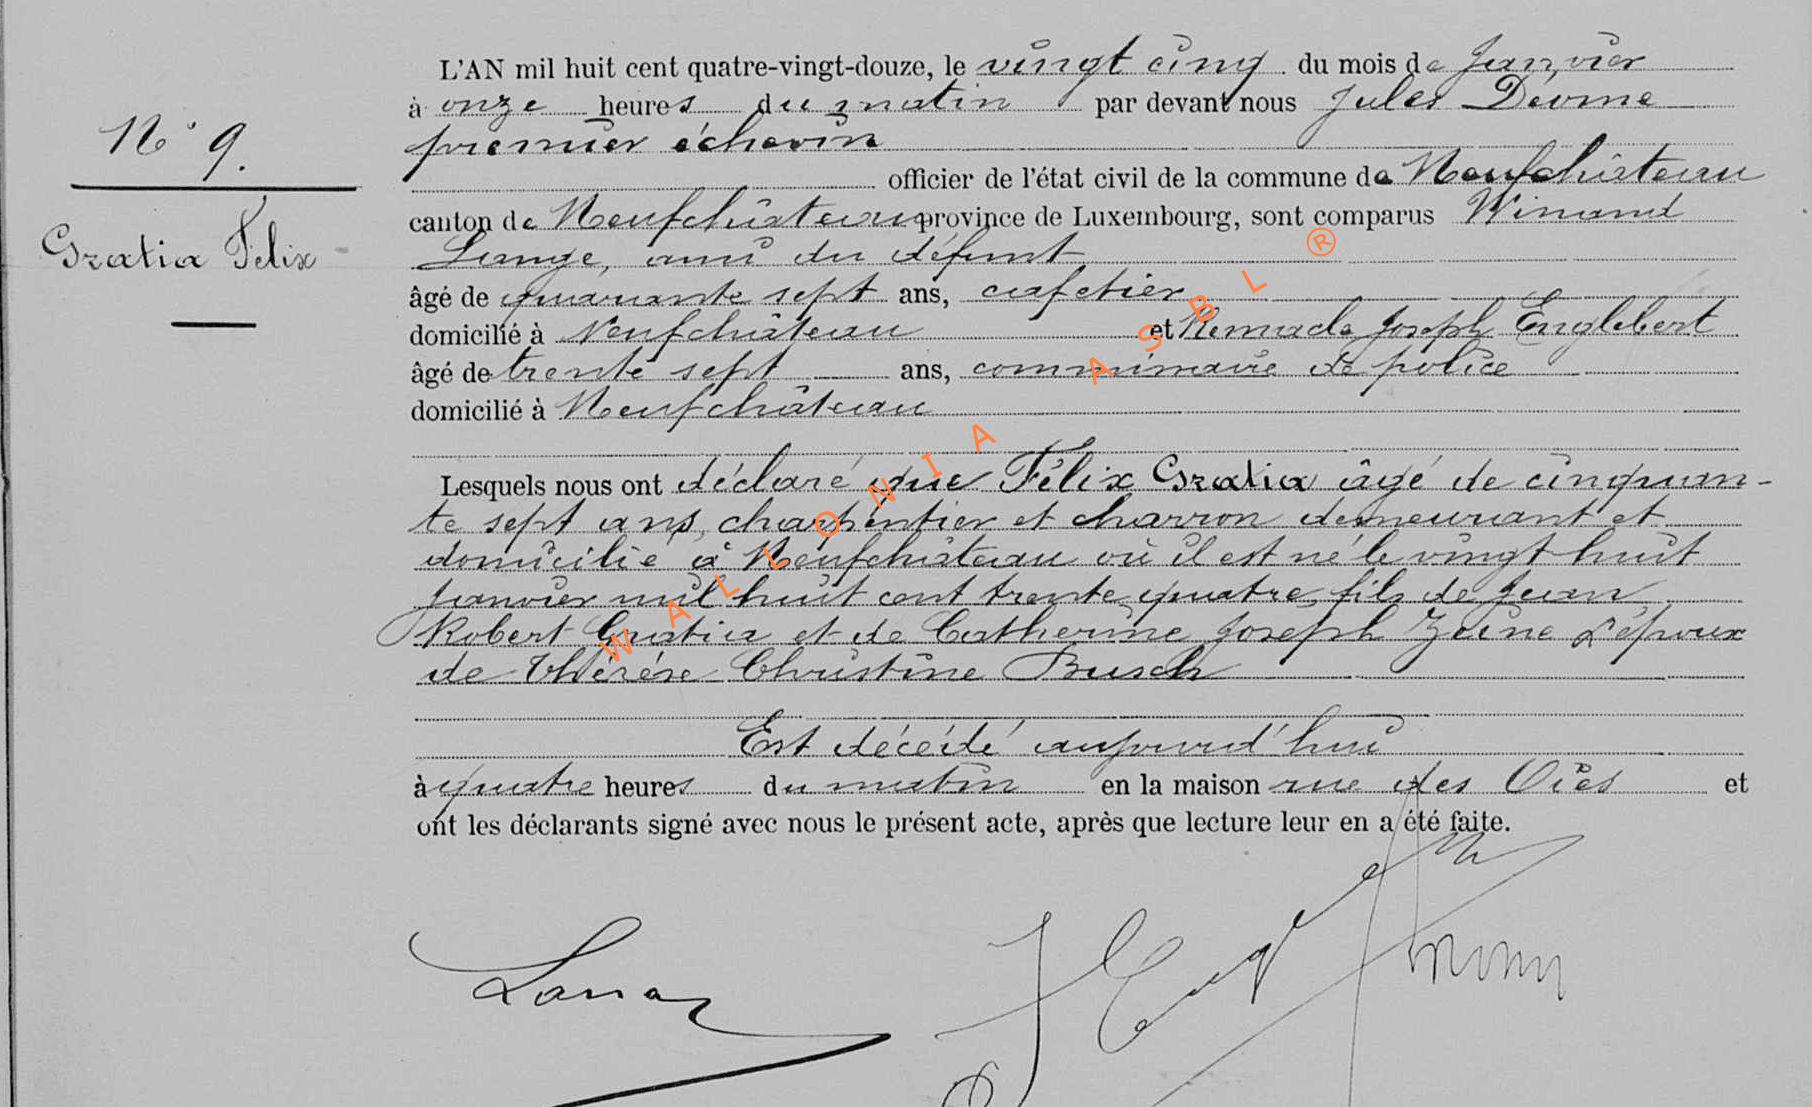 N° 9.
Gratia Félix
L'AN mil huit cent quatre-vingt-douze, le vingt cinq du mois de Janvier
à onze heures du matin par devant nous Jules
premier échevin
officier de l'état civil de la commune de Neufchâteau
canton de Neufchâteau province de Luxembourg, sont comparus Winand
Lange, ami du défunt
âgé de quarante sept ans, cafetier
domicilié à Neufchâteau et Remacle Joseph Englebert
âgé de trente sept ans, commissaire de police
domicilié à Neufchâteau
Lesquels nous ont déclaré que Félix Gratia âgé de cinquan-
te sept ans, charpentier et charron demeurant et
domicilié à Neufchâteau où il est né le vingt huit
Janvier mil huit cent trente quatre, fils de Jean
Robert Gratia et de Catherine Joseph époux
de Thérèse Christine Busch
Est décédé aujourd'hui
à quatre heures du matin en la maison rue des Oies et
ont les déclarants signé avec nous le présent acte, après que lecture leur en a été faite.
WALLONIA ASBL ®